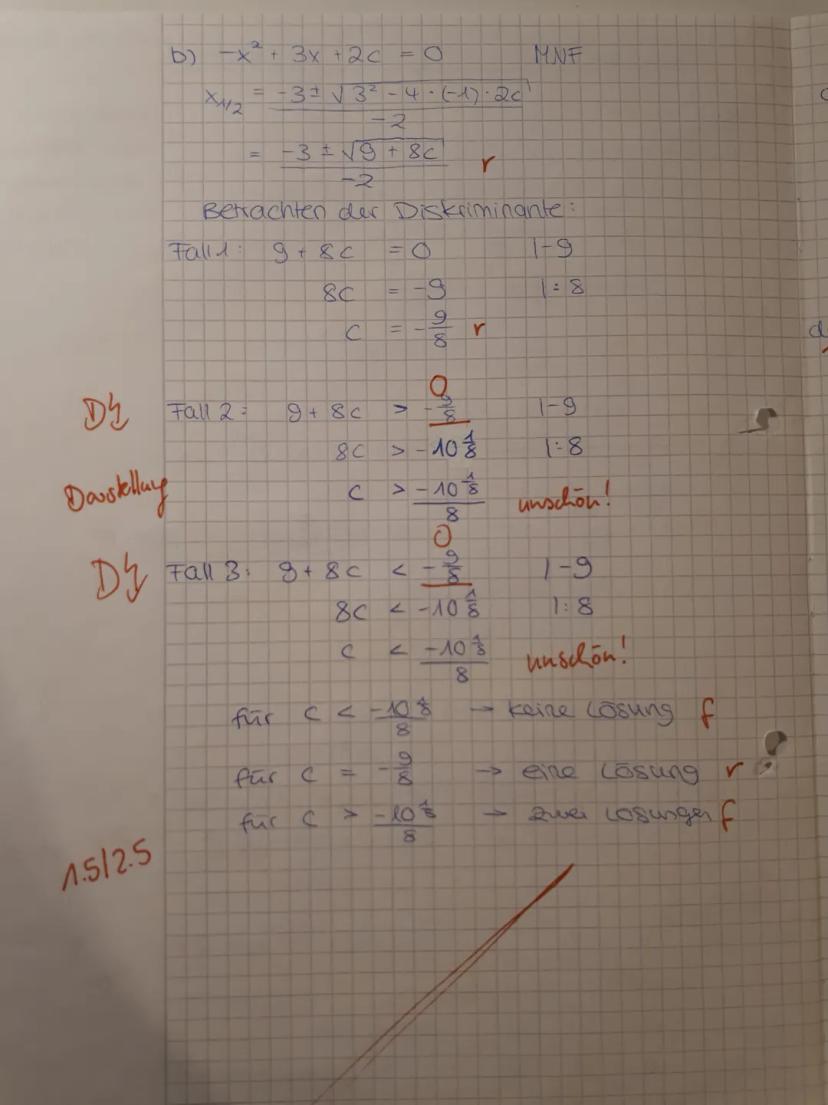 b) -x² + 3x + 2c = 0 MNF
x₁/₂ = (-3 ± √(3² - 4 · (-1) · 2c)) / -2
= (-3 ± √(9 + 8c)) / -2 r
Betrachten der Diskriminante:
Fall 1: 9 + 8c = 0 |-9
8c = -9 |:8
c = -9/8 r
0
D↯ Fall 2: 9 + 8c > -9/8 |-9
8c > -10 1/8 |:8
Darstellung c > (-10 1/8)/8 unschön!
0
D↯ Fall 3: 9 + 8c < -9/8 |-9
8c < -10 1/8 |:8
c < (-10 1/8)/8 unschön!
für c < (-10 1/8)/8 → keine Lösung f
für c = -9/8 → eine Lösung r
für c > (-10 1/8)/8 → zwei Lösungen f
1.5/2.5